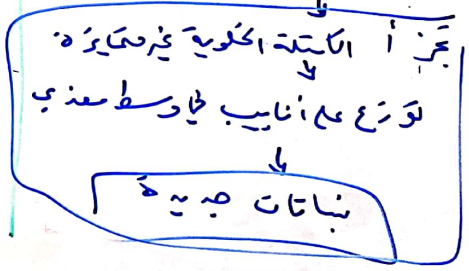 تجزأ الكتلة الخلوية غير متمايزة
توزع على أنابيب في وسط مغذي
نباتات جديدة